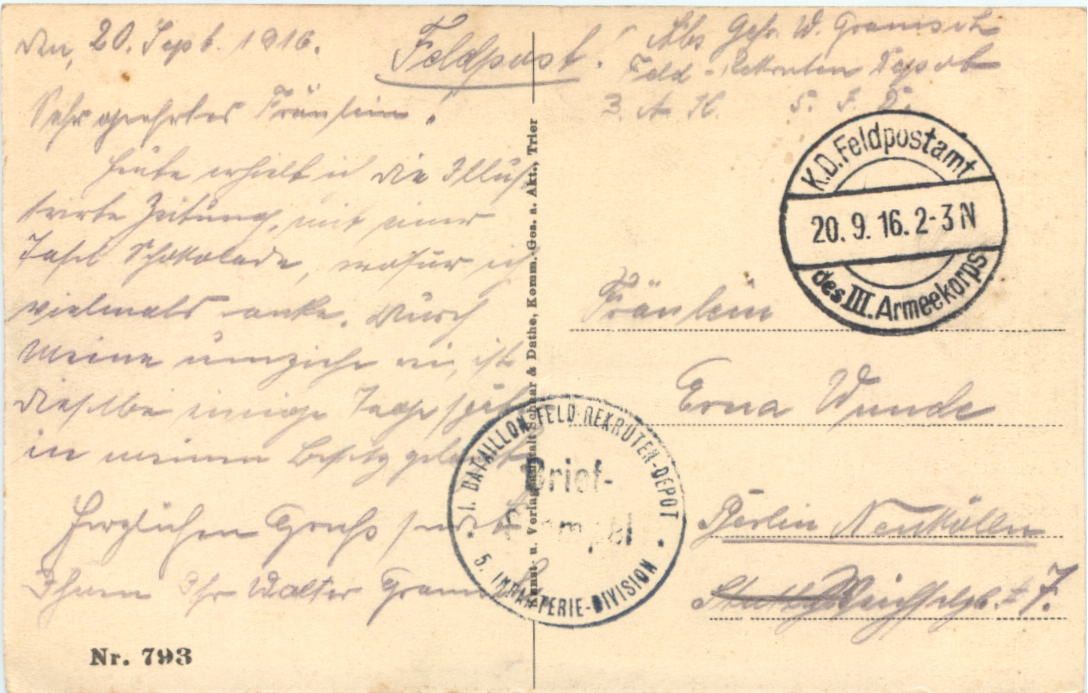 den, 20. Sept. 1916.
Feldpost!
Abs Gefr. W. Granisch
Feld-Rekruten Depot
3. A. K. 5. I. D.
Sehr geehrtes Fräulein!
Heute erhielt ich die Illus-
trirte Zeitung, mit einer
Tafel Schokolade, wofür ich
vielmals danke. Durch
meine umzieherei, ist
dieselbe einige Tage spät
in meinen Besitz gelangt
Herzlichen Gruß sendet
Ihnen Ihr Walter
Nr. 793
Kunst- u. Verlagsanstalt Schaar & Dathe, Komm.-Ges. a. Akt., Trier
K.D. Feldpostamt
20. 9. 16. 2-3 N
des III. Armeekorps
I. BATAILLON FELD-REKRUTEN-DEPOT
Brief-
stempel
5. INFANTERIE-DIVISION
Fräulein
Erna Wunde
Berlin Neukölln
7.